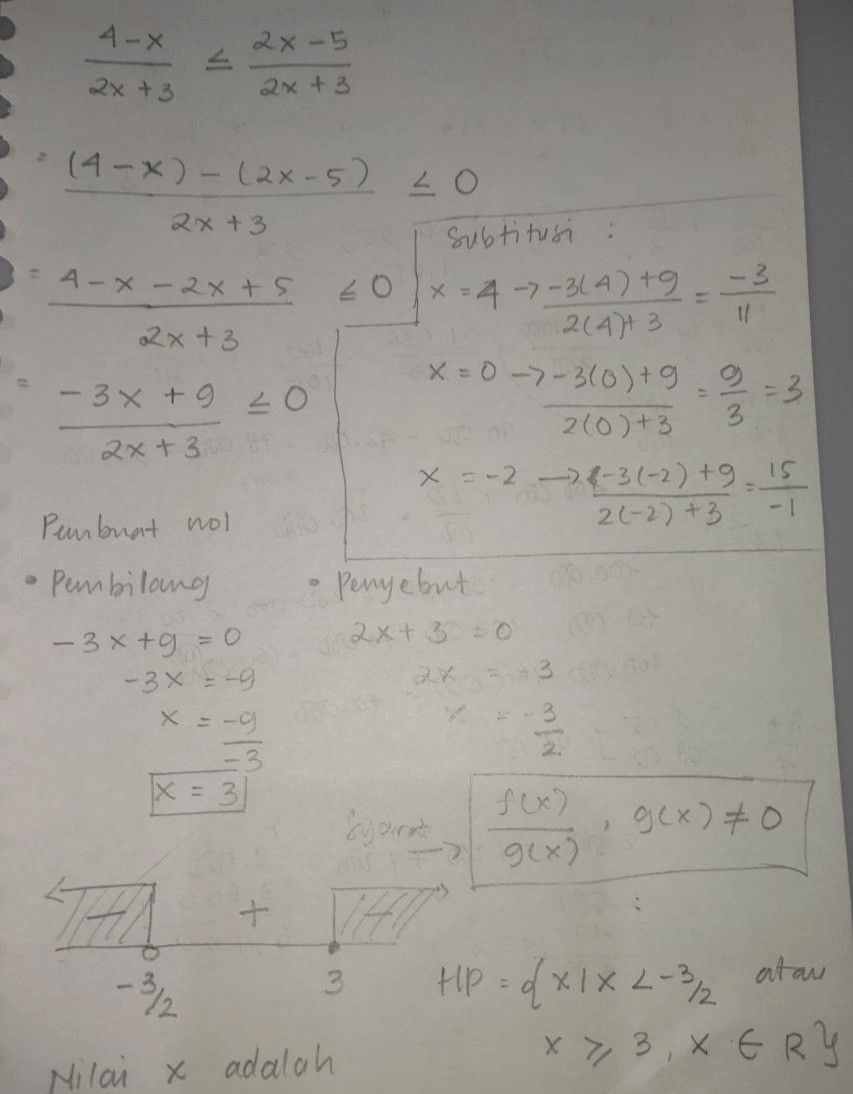 4-x / 2x+3 ≤ 2x-5 / 2x+3
= (4-x) - (2x-5) / 2x+3 ≤ 0
= 4-x-2x+5 / 2x+3 ≤ 0
= -3x+9 / 2x+3 ≤ 0
Subtitusi :
x = 4 → -3(4)+9 / 2(4)+3 = -3 / 11
x = 0 → -3(0)+9 / 2(0)+3 = 9/3 = 3
x = -2 → -3(-2)+9 / 2(-2)+3 = 15 / -1
Pembuat nol
• Pembilang
-3x+9 = 0
-3x = -9
x = -9 / -3
x = 3
• Penyebut
2x+3 = 0
2x = -3
x = -3 / 2
Syarat → f(x) / g(x) , g(x) ≠ 0
- + -
-3/2 3
:
HP = {x|x < -3/2 atau
x ≥ 3, x ∈ R}
Nilai x adalah